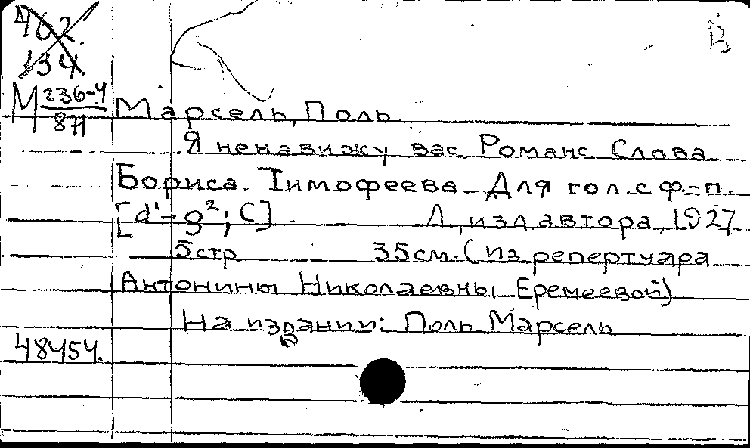 402
134
В
М 236-4
871
Марсель, Поль
Я ненавижу вас. Романс. Слова
Бориса Тимофеева. Для гол. с ф-п.
[d¹-g²; C] Л., изд. автора, 1927
5 стр 35 см. (Из репертуара
Антонины Николаевны Еремеевой)
На издании: Поль Марсель
48454.